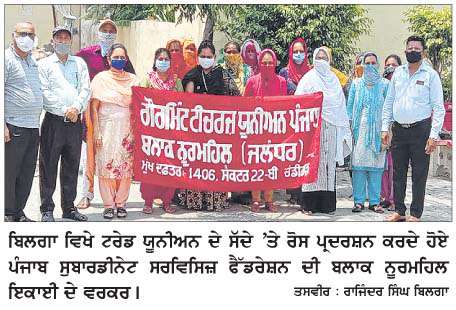 ਗੌਰਮਿੰਟ ਟੀਚਰਜ਼ ਯੂਨੀਅਨ ਪੰਜਾਬ
ਬਲਾਕ ਨੂਰਮਹਿਲ (ਜਲੰਧਰ)
ਮੁੱਖ ਦਫਤਰ: 1406, ਸੈਕਟਰ 22-ਬੀ ਚੰਡੀਗੜ੍ਹ
ਬਿਲਗਾ ਵਿਖੇ ਟਰੇਡ ਯੂਨੀਅਨ ਦੇ ਸੱਦੇ 'ਤੇ ਰੋਸ ਪ੍ਰਦਰਸ਼ਨ ਕਰਦੇ ਹੋਏ
ਪੰਜਾਬ ਸੁਬਾਰਡੀਨੇਟ ਸਰਵਿਸਿਜ਼ ਫੈੱਡਰੇਸ਼ਨ ਦੀ ਬਲਾਕ ਨੂਰਮਹਿਲ
ਇਕਾਈ ਦੇ ਵਰਕਰ। ਤਸਵੀਰ : ਰਾਜਿੰਦਰ ਸਿੰਘ ਬਿਲਗਾ